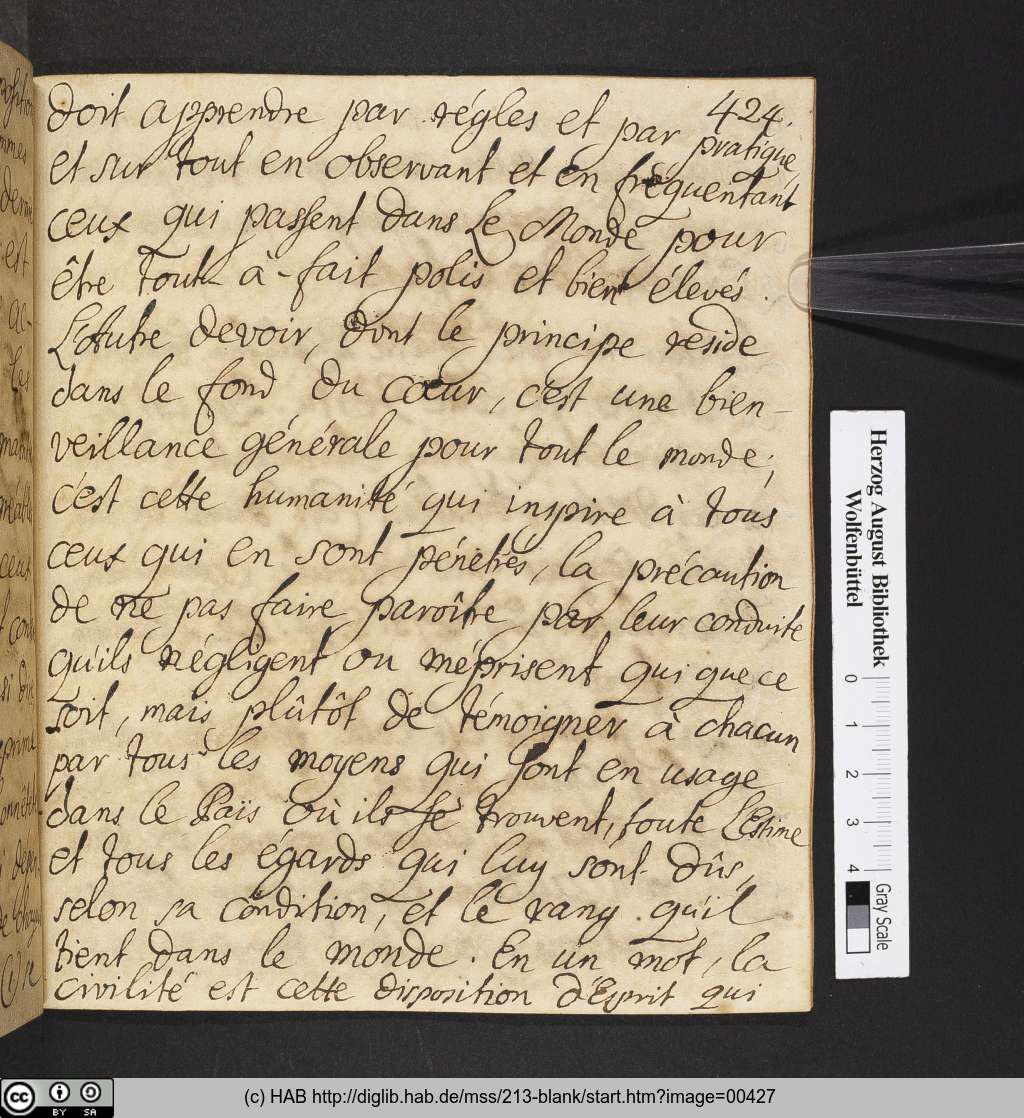 424.
doit apprendre par régles et par pratique,
et sur tout en observant et en fréquentant
ceux qui passent dans le Monde pour
être tout à-fait polis et bien élevés.
L'Autre devoir, dont le principe réside
dans le fond du cœur, c'est une bien-
veillance générale pour tout le monde;
c'est cette humanité qui inspire à tous
ceux qui en sont pénétrés, la précaution
de ne pas faire paroître par leur conduite
qu'ils négligent ou méprisent qui que ce
soit, mais plûtôt de témoigner à chacun
par tous les moyens qui sont en usage
dans le Païs où ils se trouvent, toute l'Estime
et tous les égards qui luy sont dûs,
selon sa condition, et le rang qu'il
tient dans le monde. En un mot, la
civilité est cette disposition d'Esprit qui
Herzog August Bibliothek
Wolfenbüttel
0 1 2 3 4
Gray Scale
(c) HAB http://diglib.hab.de/mss/213-blank/start.htm?image=00427
cc BY SA